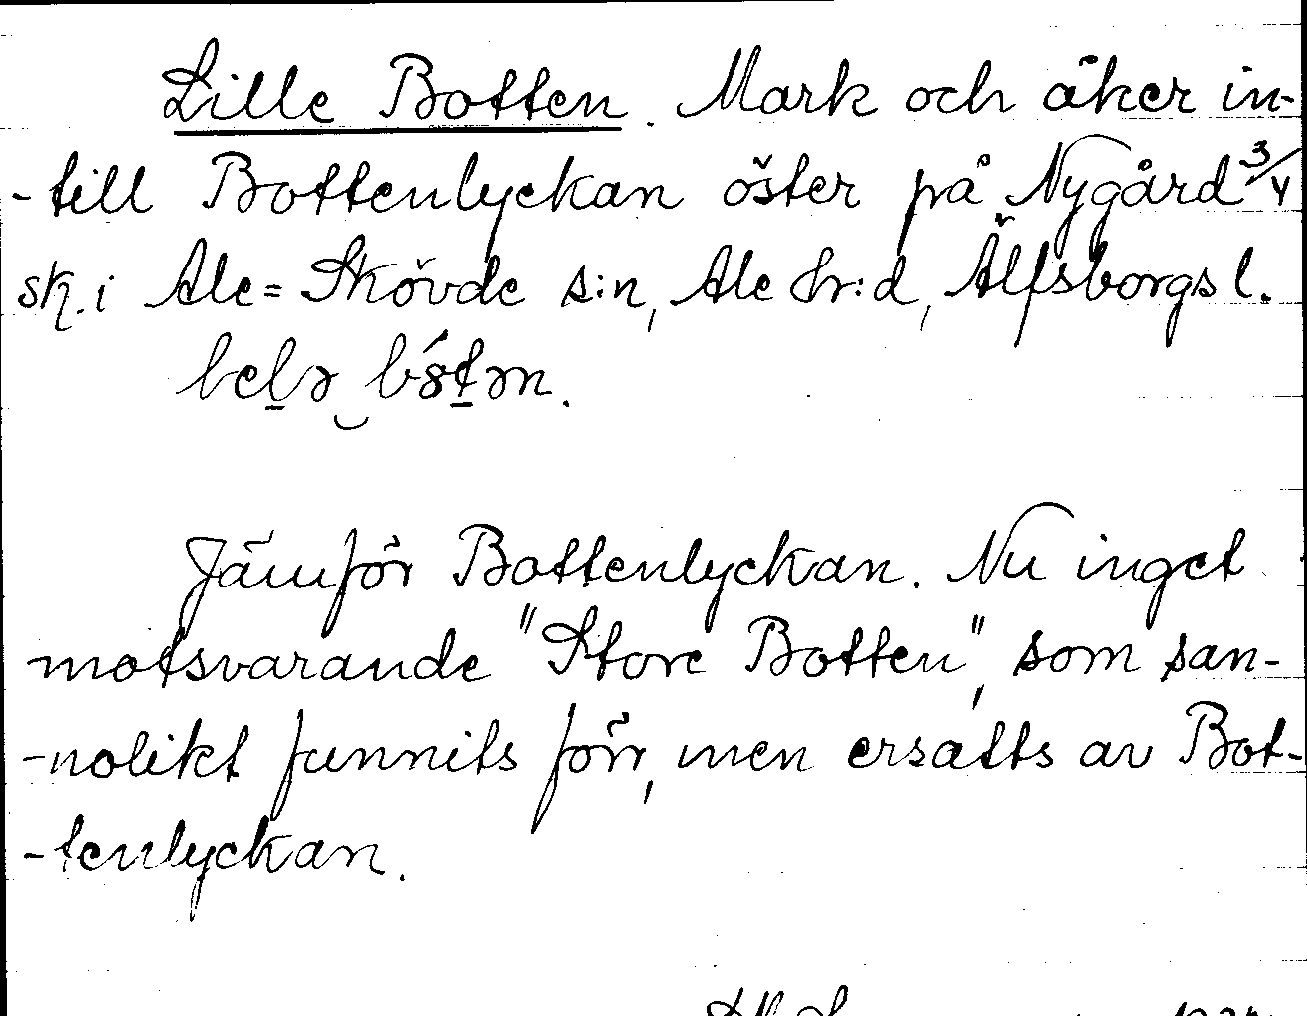 Lille Botten. Mark och åker in-
-till Bottenlyckan öster på Nygård 3/4
sk. i Ale=Skövde s:n, Ale hr:d, Älfsborgs l.
Jämför Bottenlyckan. Nu inget
motsvarande "Store Botten", som san-
-nolikt funnits förr, men ersatts av Bot-
-tenlyckan.